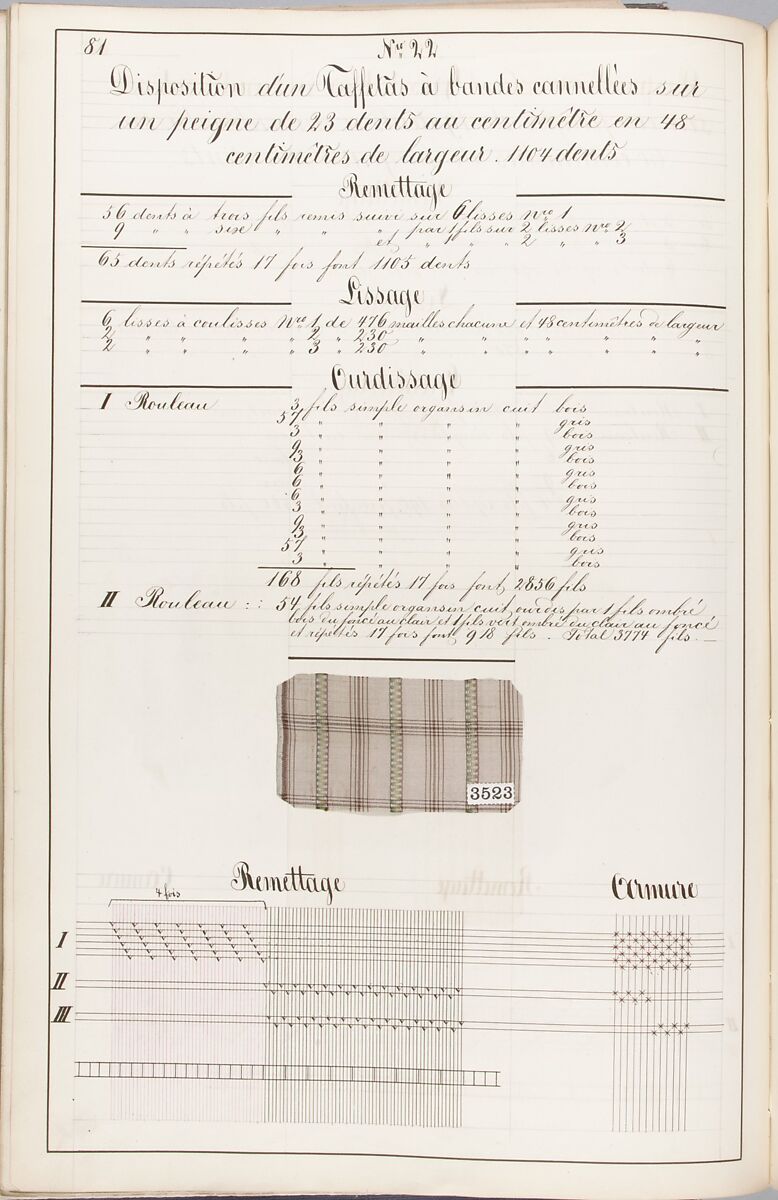 81
Nro 22
Disposition d'un Taffetas à bandes cannellées sur
un peigne de 23 dents au centimêtre en 48
centimêtres de largeur. 1104 dents
Remettage
56 dents à trois fils remis suivi sur 6 lisses Nro 1
9 " " six " " " par 1 fil sur 2 lisses Nro 2
et " " " 2 " " 3
65 dents répétés 17 fois font 1105 dents
Lissage
6 lisses à coulisses Nro 1 de 476 mailles chacune et 48 centimêtres de largeur
2 " " " " 2 " 230 " " " " " "
2 " " " " 3 " 230 " " " " " "
Ourdissage
I Rouleau 3 fils simple organsin cuit bois
57 " " " " gris
3 " " " " bois
9 " " " " gris
3 " " " " bois
6 " " " " gris
6 " " " " bois
6 " " " " gris
3 " " " " bois
9 " " " " gris
3 " " " " bois
57 " " " " gris
3 " " " " bois
168 fils répétés 17 fois font 2856 fils
II Rouleau :: 54 fils simple organsin cuit ourdis par 1 fil ombré
bois du foncé au clair et 1 fils vert ombré du clair au foncé
et répétés 17 fois font 918 fils. Total 3774 fils.
3523
Remettage
Armure
4 fois
I
II
III